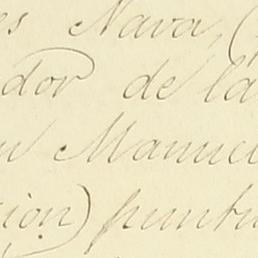 es Nava, (
ador de la
Manuel
ción) puntu